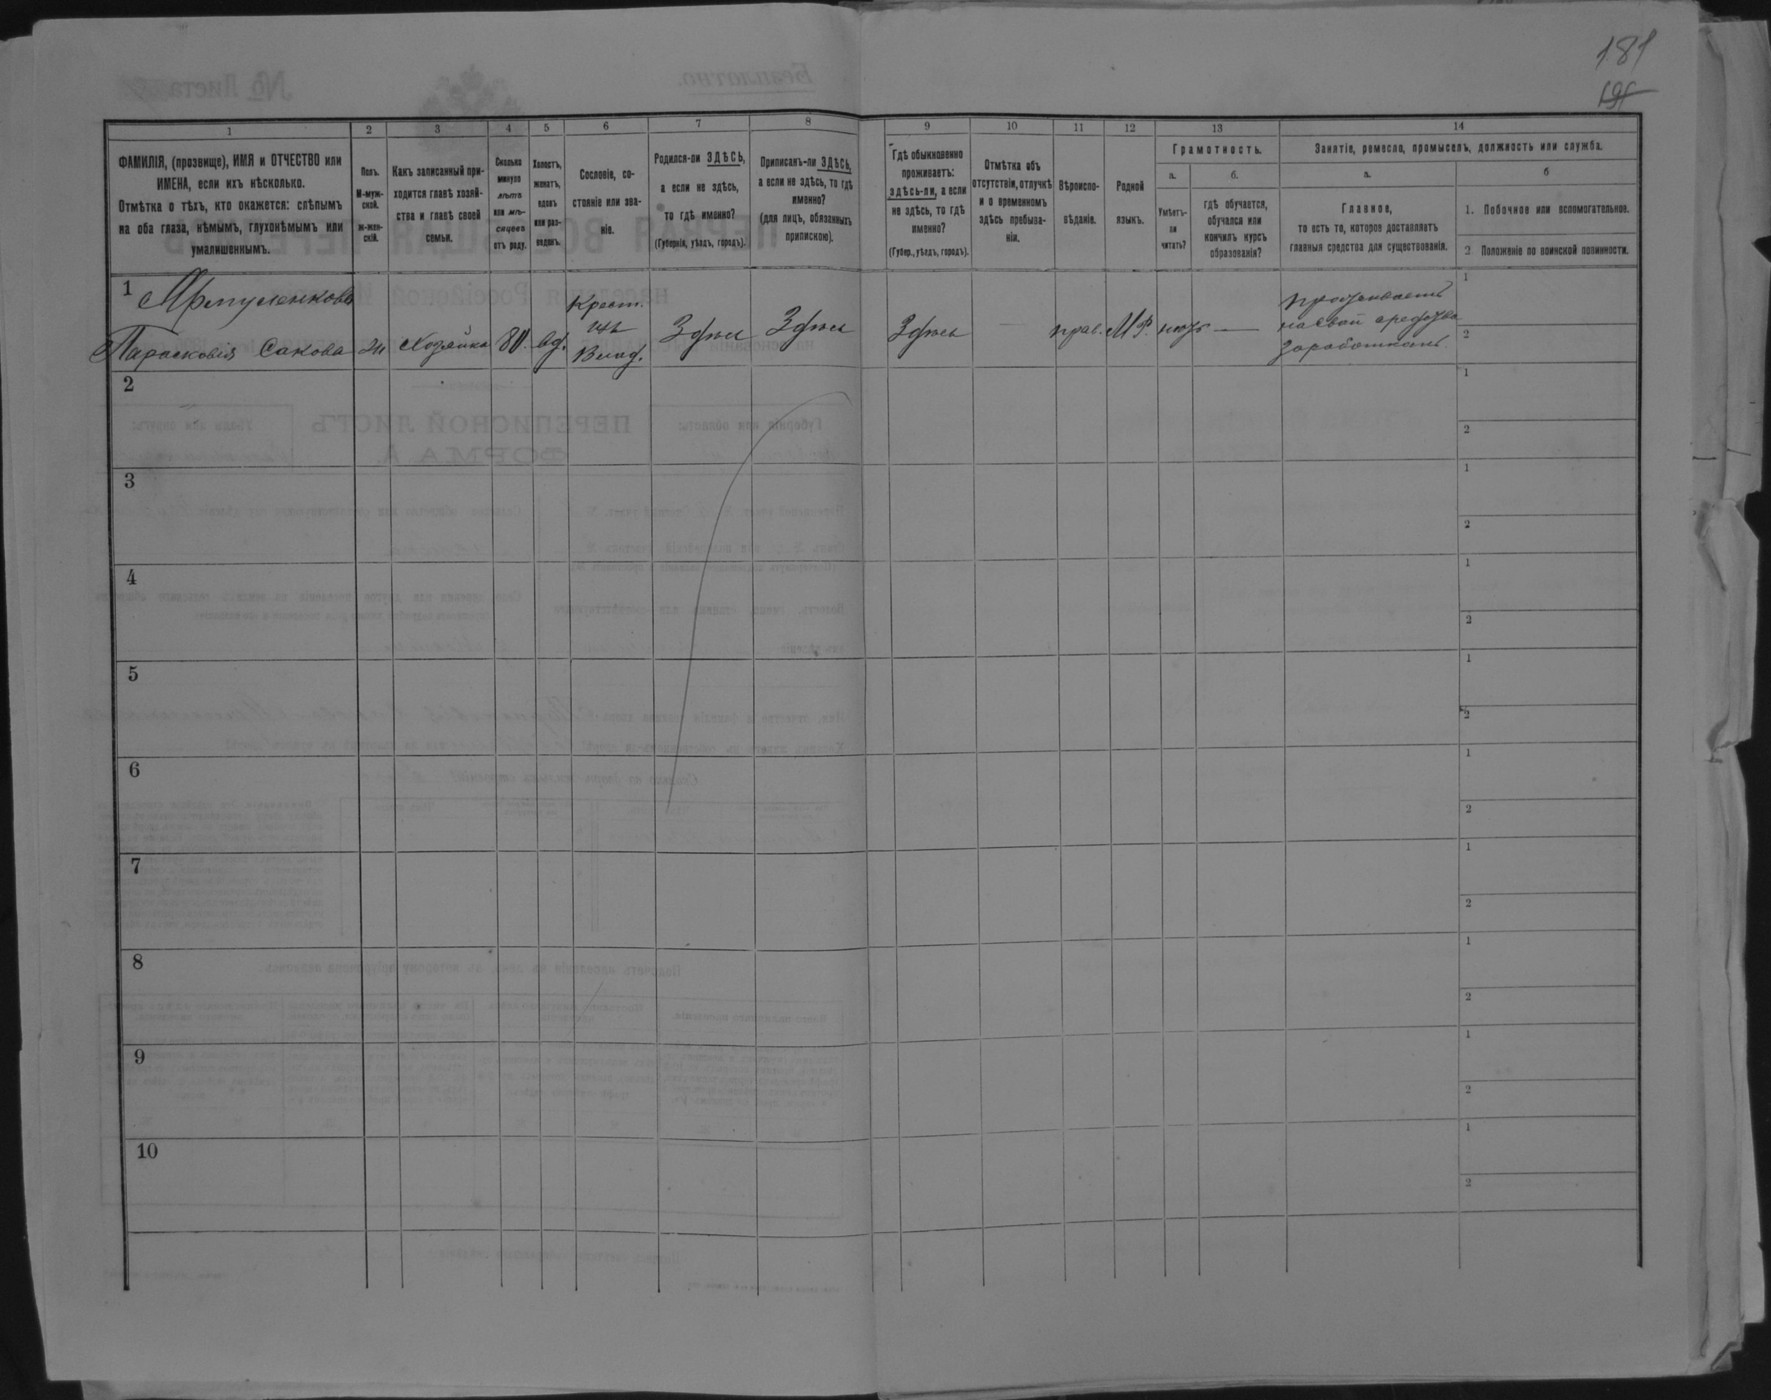 181
191
1
2
3
4
5
6
7
8
9
10
11
12
13
14
ФАМИЛІЯ, (прозвище), ИМЯ и ОТЧЕСТВО или
ИМЕНА, если ихъ нѣсколько.
Отмѣтка о тѣхъ, кто окажется: слѣпымъ
на оба глаза, нѣмымъ, глухонѣмымъ или
умалишеннымъ.
Полъ.
М-муж-
ской.
ж-жен-
скій.
Какъ записанный при-
ходится главѣ хозяй-
ства и главѣ своей
семьи.
Сколько
минуло
лѣтъ
или мѣ-
сяцевъ
отъ роду.
Холостъ,
женатъ,
вдовъ
или раз-
веденъ.
Сословіе, со-
стояніе или зва-
ніе.
Родился-ли ЗДѢСЬ,
а если не здѣсь,
то гдѣ именно?
(Губернія, уѣздъ, городъ).
Приписанъ-ли ЗДѢСЬ,
а если не здѣсь, то гдѣ
именно?
(для лицъ, обязанныхъ
припискою).
Гдѣ обыкновенно
проживаетъ:
здѣсь-ли, а если
не здѣсь, то гдѣ
именно?
(Губер., уѣздъ, городъ).
Отмѣтка объ
отсутствіи, отлучкѣ
и о временномъ
здѣсь пребыва-
ніи.
Вѣроиспо-
вѣданіе.
Родной
языкъ.
Грамотность.
а.
Умѣетъ-
ли
читать?
б.
гдѣ обучается,
обучался или
кончилъ курсъ
образованія?
Занятіе, ремесло, промыселъ, должность или служба.
а.
Главное,
то есть то, которое доставляетъ
главныя средства для существованія.
б
1. Побочное или вспомогательное.
2. Положеніе по воинской повинности.
1
Парасковія Сакова
ж
Хозяйка
80
вд.
Крест.
Влад.
Здѣсь
Здѣсь
Здѣсь
—
прав.
М Р.
нѣтъ
—
проживаетъ
на свои средства
заработкомъ
1
2
2
1
2
3
1
2
4
1
2
5
1
2
6
1
2
7
1
2
8
1
2
9
1
2
10
1
2